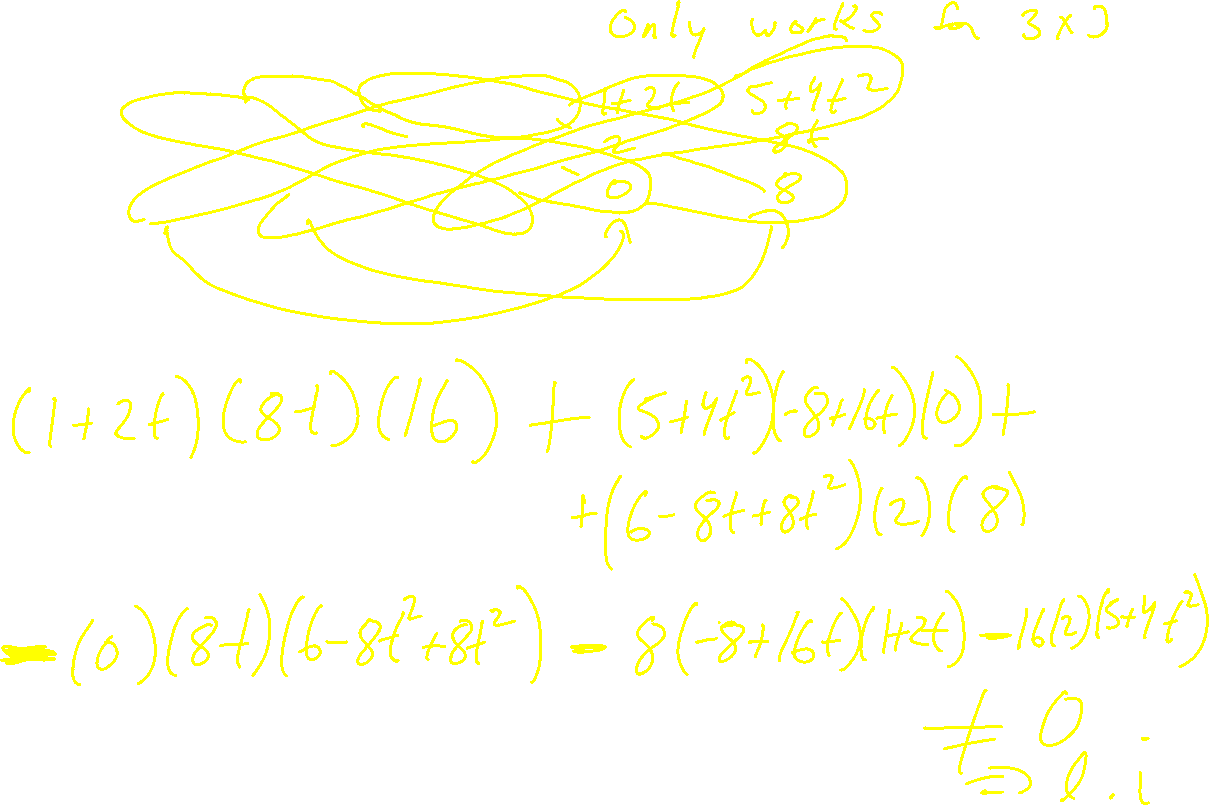 Only works for 3x3
1+2t 5+4t²
2 8t
0 8
(1+2t)(8t)(16) + (5+4t²)(-8+16t)(0) +
+(6-8t+8t²)(2)(8)
-(0)(8t)(6-8t²+8t²) - 8(-8+16t)(1+2t) - 16(2)(5+4t²)
≠ 0
⇒ l.i